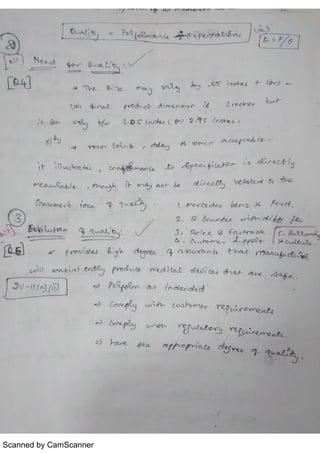 Quality = Performance ÷ Expectations
Q = P/E
Need for Quality.
Q4
The Size may vary by .05 inches + (or) -
final product dimension is 3 inches but
it can vary b/w 3.05 inches (or) 2.95 inches.
room service, delay 10 min is acceptable.
it illustrates, conformance to specification is directly
measurable, though it may not be directly related to the
consumer's idea of quality.
1. Mercedes benz & Ford.
2. Lounges with diff
3. Rolex & fastrack
4. Customer Support
3
Evolution of quality:
Q5
provides high degree of assurance that manufacturer
will consistently produce medical devices that are safe.
Perform as intended
Comply with customer requirements
Comply with regulatory requirements.
have the appropriate degree of quality.
Scanned by CamScanner